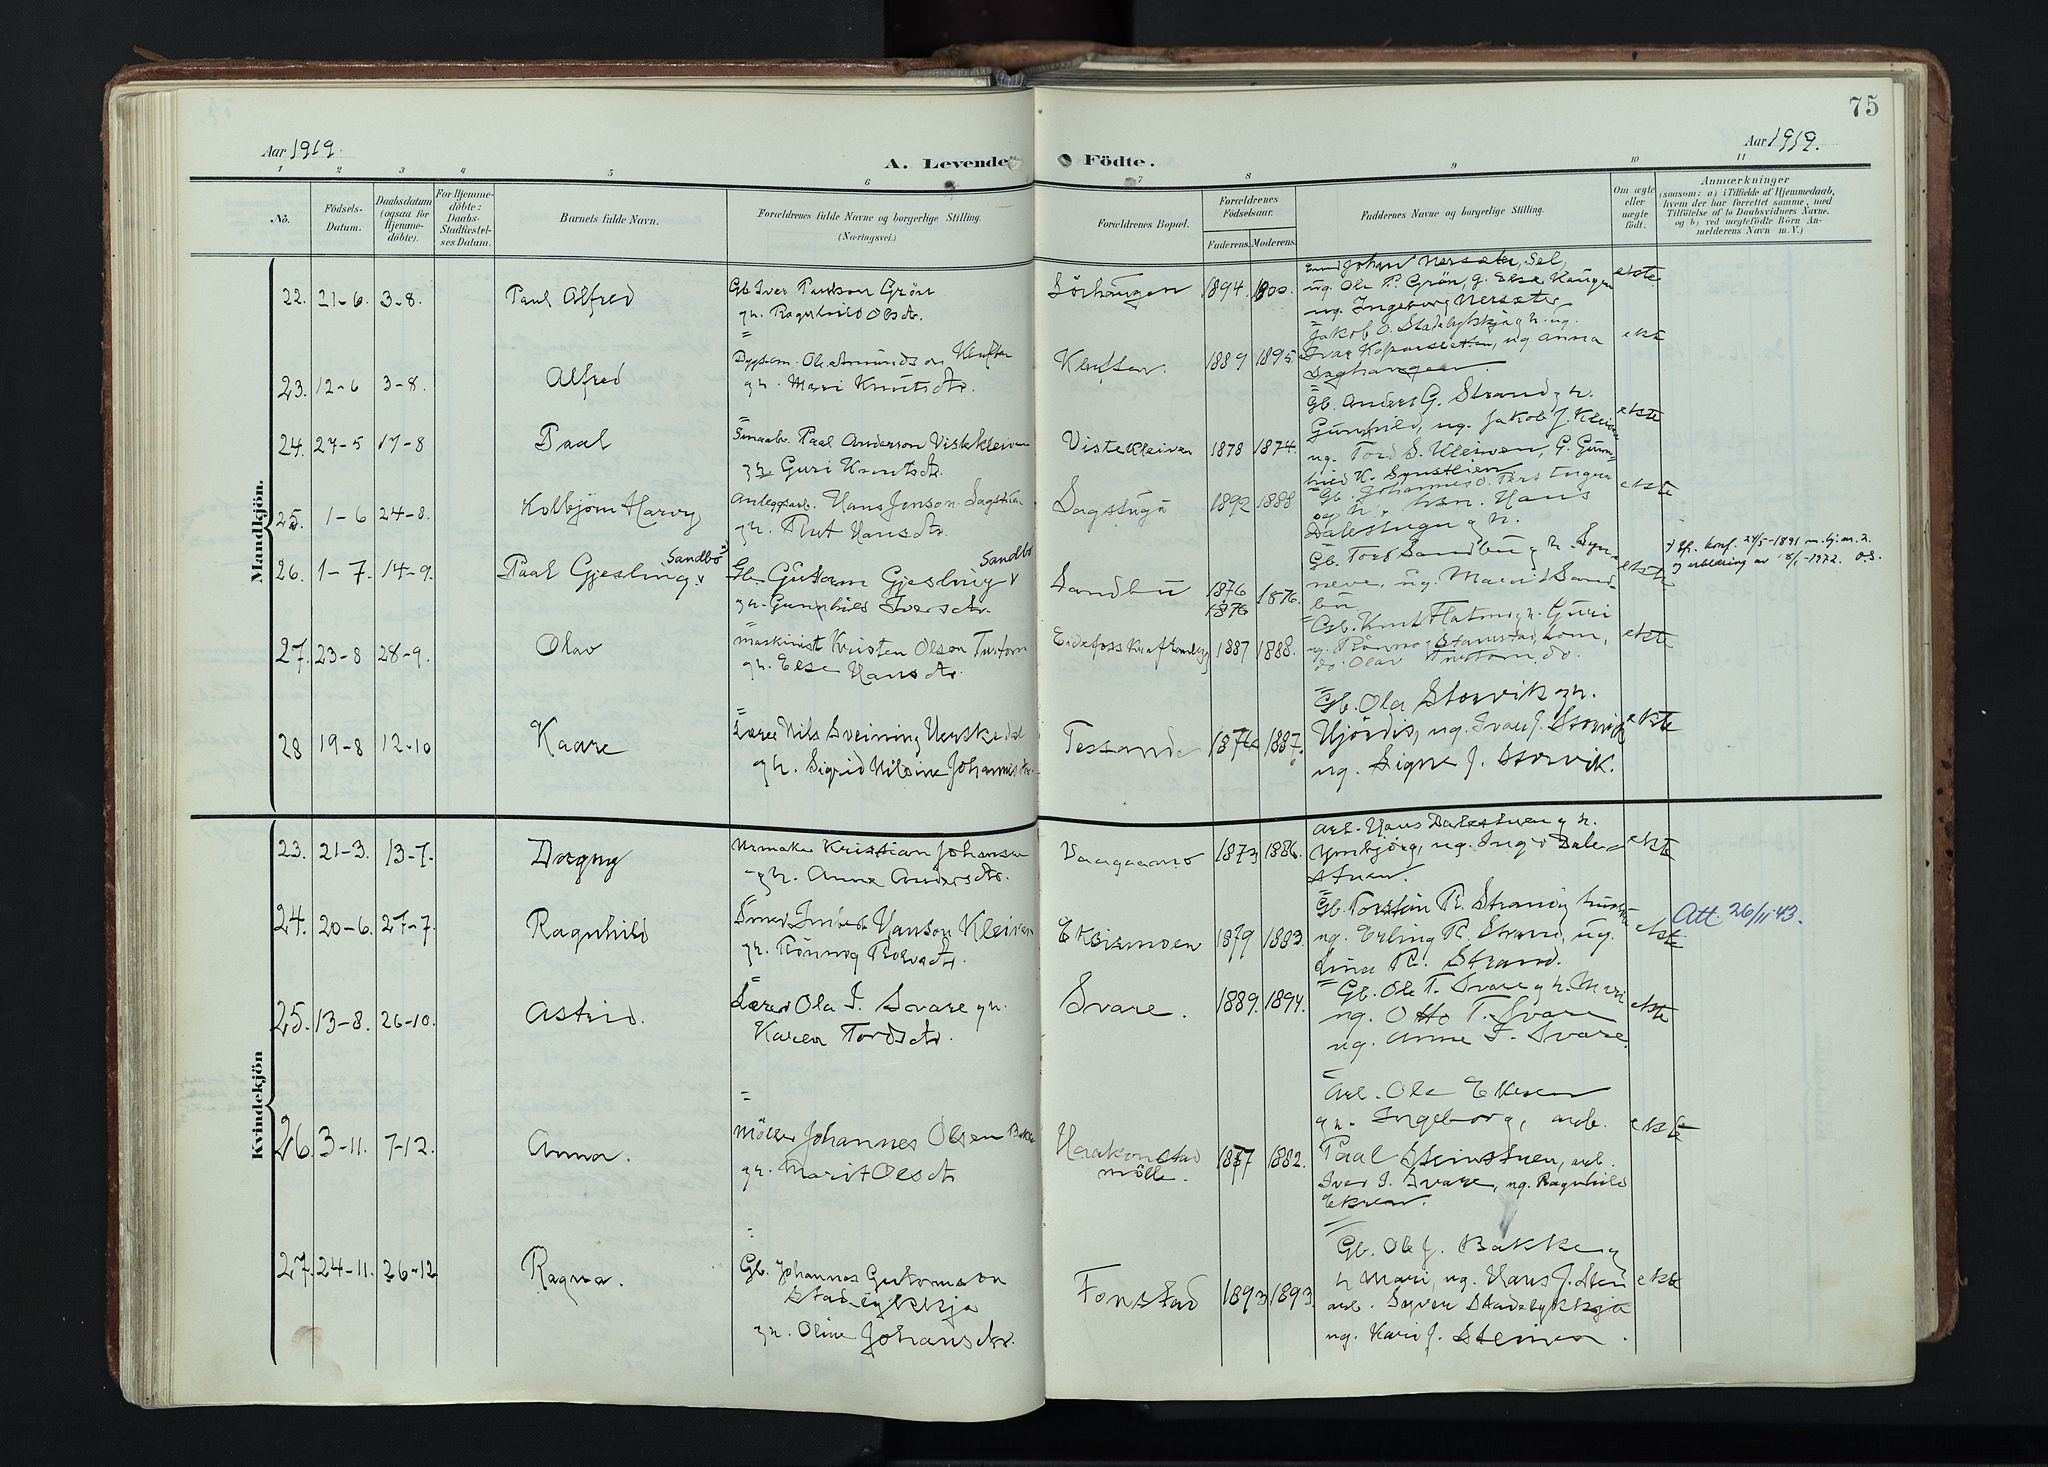 75
Aar 1919.
A. Levende Födte.
Aar 1919.
1 2 3 4 5 6 7 8 9 10 11
No.
Födsels-
Datum.
Daabsdatum
(ogsaa for
Hjemme-
döbte).
For Hjemme-
döbte:
Daabs-
Stadfæstel-
ses Datum.
Barnets fulde Navn.
Forældrenes fulde Navne og borgerlige Stilling.
(Næringsvei.)
Forældrenes Bopæl.
Forældrenes
Födselsaar.
Faderens. Moderens.
Faddernes Navne og borgerlige Stilling.
Om ægte
eller
uægte
födt.
Anmærkninger
(saasom: a) i Tilfælde af Hjemmedaab,
hvem der har forrettet samme, med
Tilföielse af to Daabsvidners Navne,
og b) ved uægtefödte Börn An-
melderens Navn m. V.)
Mandkjön.
22. 21-6. 3-8. Paul Alfred
Gb. Iver Paulson Grön
gh. Ragnhild Olsdtr.
Sörhaugen 1894. 1900.
Johan Nersæter, Sel,
ug. Ole P. Grön, g. Else Haugen
ug. Ingeborg Nersæter
ekte
23. 12-6 3-8. Alfred
Ole Amundson Kluften
gh. Mari Knutsdtr.
Kluften. 1889 1895
Jakob O. Stadeløkken gh. ug.
Ivar, ug Anna
Saghaugen.
ekte
24. 27-5 17-8 Paal
Smaabr. Paal Anderson Vistekleiven
gh. Guri Knutsdtr.
Vistekleiven 1878 1874.
Gb. Anders G. Strand gh.
Gunhild, ug. Jakob J. Kleiven
ug. Tord S. Kleiven, G. Gun-
hild K.
ekte
25. 1-6 24-8. Kolbjörn Harry
Anlegsarb. Hans Jonson Sagstuen
gh. Hansdtr.
Sagstugu 1892 1888
Gb. Johannes O.
og h., Hans
Dalestugu gh.
ekte
26. 1-7. 14-9. Paal Gjesling Sandbo
Gb. Gutorm Gjesling Sandbo
gh. Gunnhild Iversdtr.
Sandbu 1876 1876 1876.
Gb. Tord Sandbu gh. Syn-
neve, ug. Marit Sand-
bu
ekte
konf. 24/5-1891
erklæring av 18/1-1972. O.S.
27. 23-8 28-9. Olav
maskinist Kristen Olson Tustom
gh. Else Hansdtr.
Eidefoss Kraftanlegg 1887 1888.
Gb. Knut Flatmo gh. Guri
ug. Rönnog, Lom,
do. Olav do.
ekte
28 19-8 12-10 Kaare
Lærer Nils Sveining Herskedal
gh. Sigrid Nilsine Johannesdtr.
Tessande 1876 1887.
Gb. Ola Storvik gh.
Hjördis, ug. Ivar J. Storvik
ug. Signe J. Storvik.
ekte
Kvindekjön
23. 21-3. 13-7. Dagny
Urmaker Kristian Johansen
gh. Anne Andersdtr.
Vaagaamo 1873 1886.
Arb. Hans Dalestuen gh.
Ymbjörg, ug. Inga Dale-
stuen.
ekte
24. 20-6. 27-7. Ragnhild
Smed Imbert Hanson Kleiven
gh. Rönnog Rolvsdtr.
Ekreismoen 1879 1883.
Gb. Torstein R. Strand g hustru
ug. Erling R. Strand, ug.
Lina R. Strand.
ekte
Att. 26/11 43.
25. 13-8. 26-10. Astrid.
Lærer Ola I. Svare gh.
Karen Tordsdtr.
Svare. 1889. 1894.
Gb. Ole T. Svare gh. Mari
ug. Otto T. Svare
ug. Anne I. Svare.
ekte
26. 3-11. 7-12. Anna.
Möller Johannes Olsen Bakke
gh. Marit Olsdtr
Haakonstad
mölle. 1877 1882.
Arb. Ole Ekren
gh. Ingeborg, arb.
Paal Steinstuen, arb.
Iver I. Svare, ug. Ragnhild
Ekren.
ekte
27. 24-11. 26-12 Ragna.
Gb. Johannes Gutormson
Stadeløkkja
gh. Oline Johansdtr.
Fonstad 1893 1893
Gb. Ole J. Bakke g
h Mari, ug. Hans J. Sten
arb. Syver Stadeløkkja
ug. Kari J.
ekte